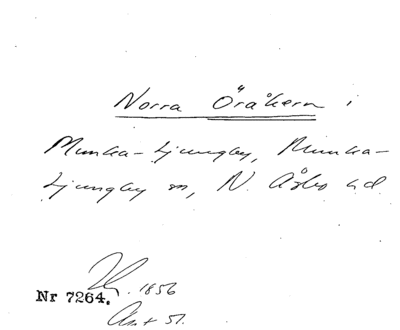 Norra Öråkern i
Munka-Ljungby, Munka-
Ljungby sn, N. Åsbo hd
1856
Nr 7264.